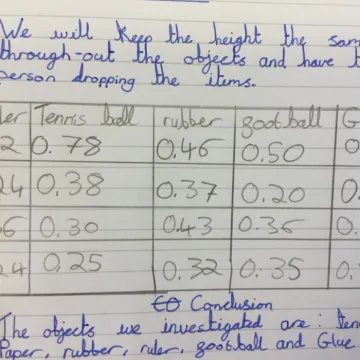 We will keep the height the sam
through-out the objects and have t
person dropping the items.
ler Tennis ball rubber gootball G
2 0.78 0.46 0.50 0.
24 0.38 0.37 0.20 0.
6 0.30 0.43 0.36 0.
24 0.25 0.32 0.35 0.
Conclusion
The objects we investigated are: Tenn
Paper, rubber, ruler, gootball and Glue